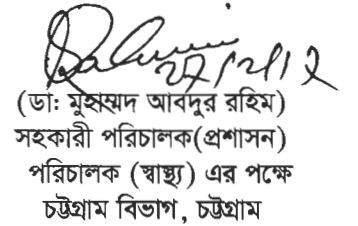 ২৭/১২/১২
(ডা: মুহাম্মদ আবদুর রহিম)
সহকারী পরিচালক(প্রশাসন)
পরিচালক (স্বাস্থ্য) এর পক্ষে
চট্টগ্রাম বিভাগ, চট্টগ্রাম